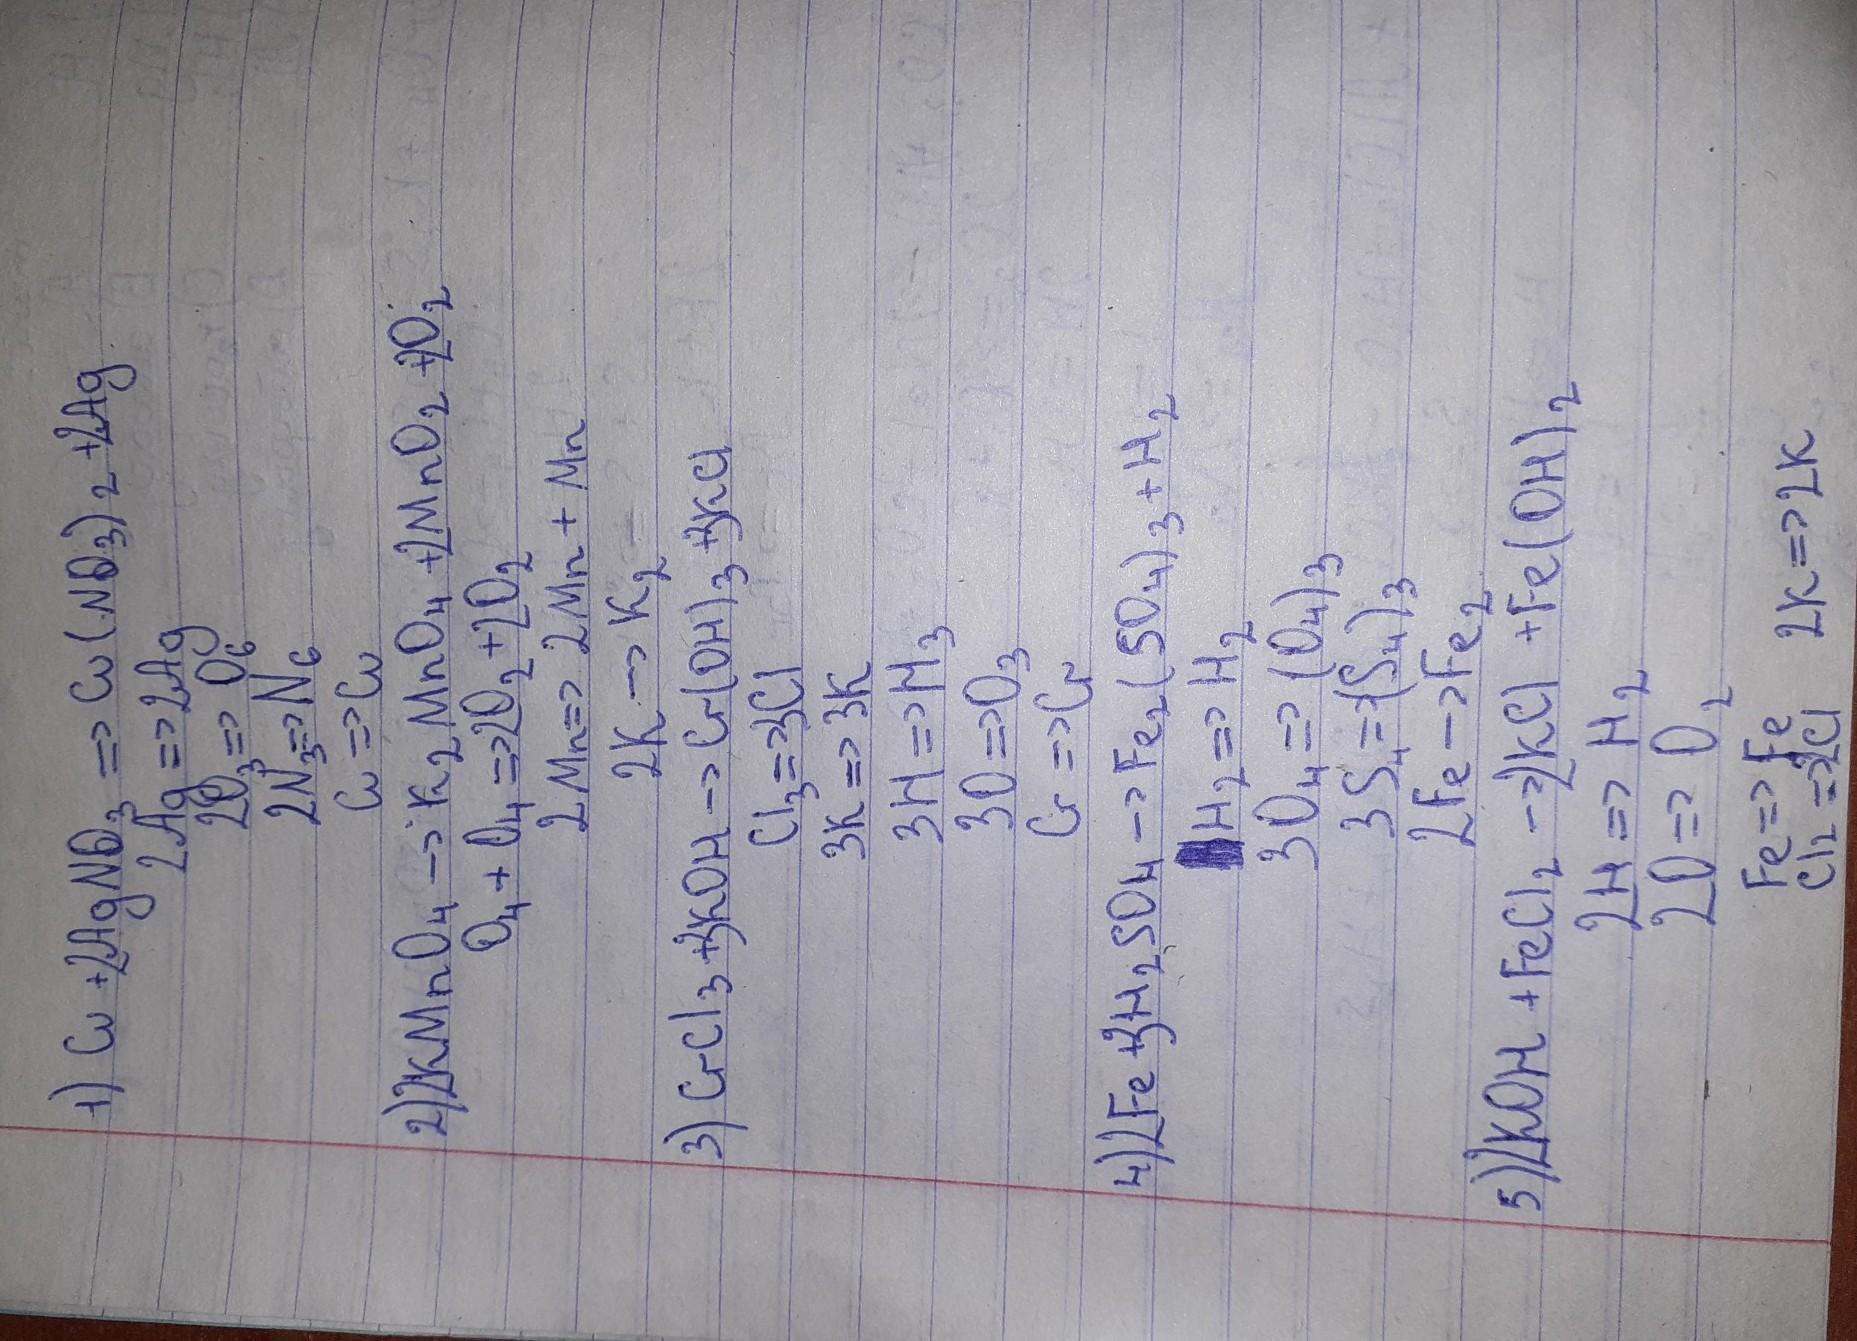 1) Cu + 2AgNO3 => Cu(NO3)2 + 2Ag
2Ag => 2Ag
2O3 => O6
2N3 => N6
Cu => Cu
2) 2KMnO4 -> K2MnO4 + 2MnO2 + 2O2
O4 + O4 => 2O2 + 2O2
2Mn => 2Mn + Mn
2K -> K2
3) CrCl3 + 3KOH -> Cr(OH)3 + 3KCl
Cl3 => 3Cl
3K => 3K
3H => H3
3O => O3
Cr => Cr
4) 2Fe + 3H2SO4 -> Fe2(SO4)3 + H2
H2 => H2
3O4 => (O4)3
3S4 = (S4)3
2Fe -> Fe2
5) 2KOH + FeCl2 -> 2KCl + Fe(OH)2
2H => H2
2O => O2
Fe => Fe 2K => 2K
Cl2 => 2Cl